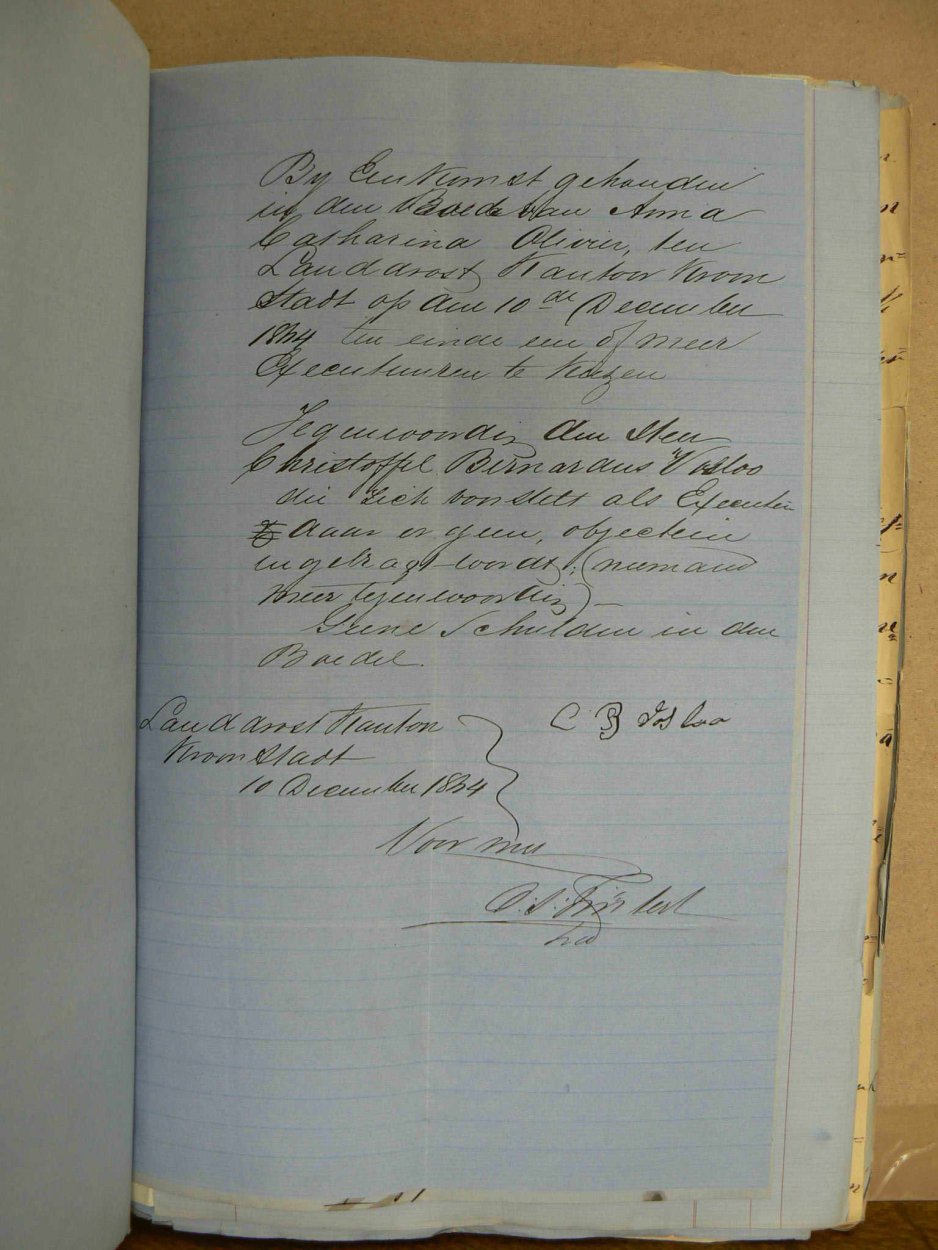 By Eenkomst gehouden
in den Boedel van Anna
Catharina Olivier, ten
Landdrost Kantoor Kroon
Stadt op den 10de December
1884 ten einde een of meer
Executeuren te kiezen
Tegenwoordig den Heer
Christoffel Bernardus Vosloo
die zich voorstelt als Executeur
daar er geen objectien
ingebragt wordt; (niemand
meer tegenwoordig)
Geene Schulden in den
Boedel.
Landdrost Kantoor
Kroonstadt
10 December 1884
C B Vosloo
Voor my